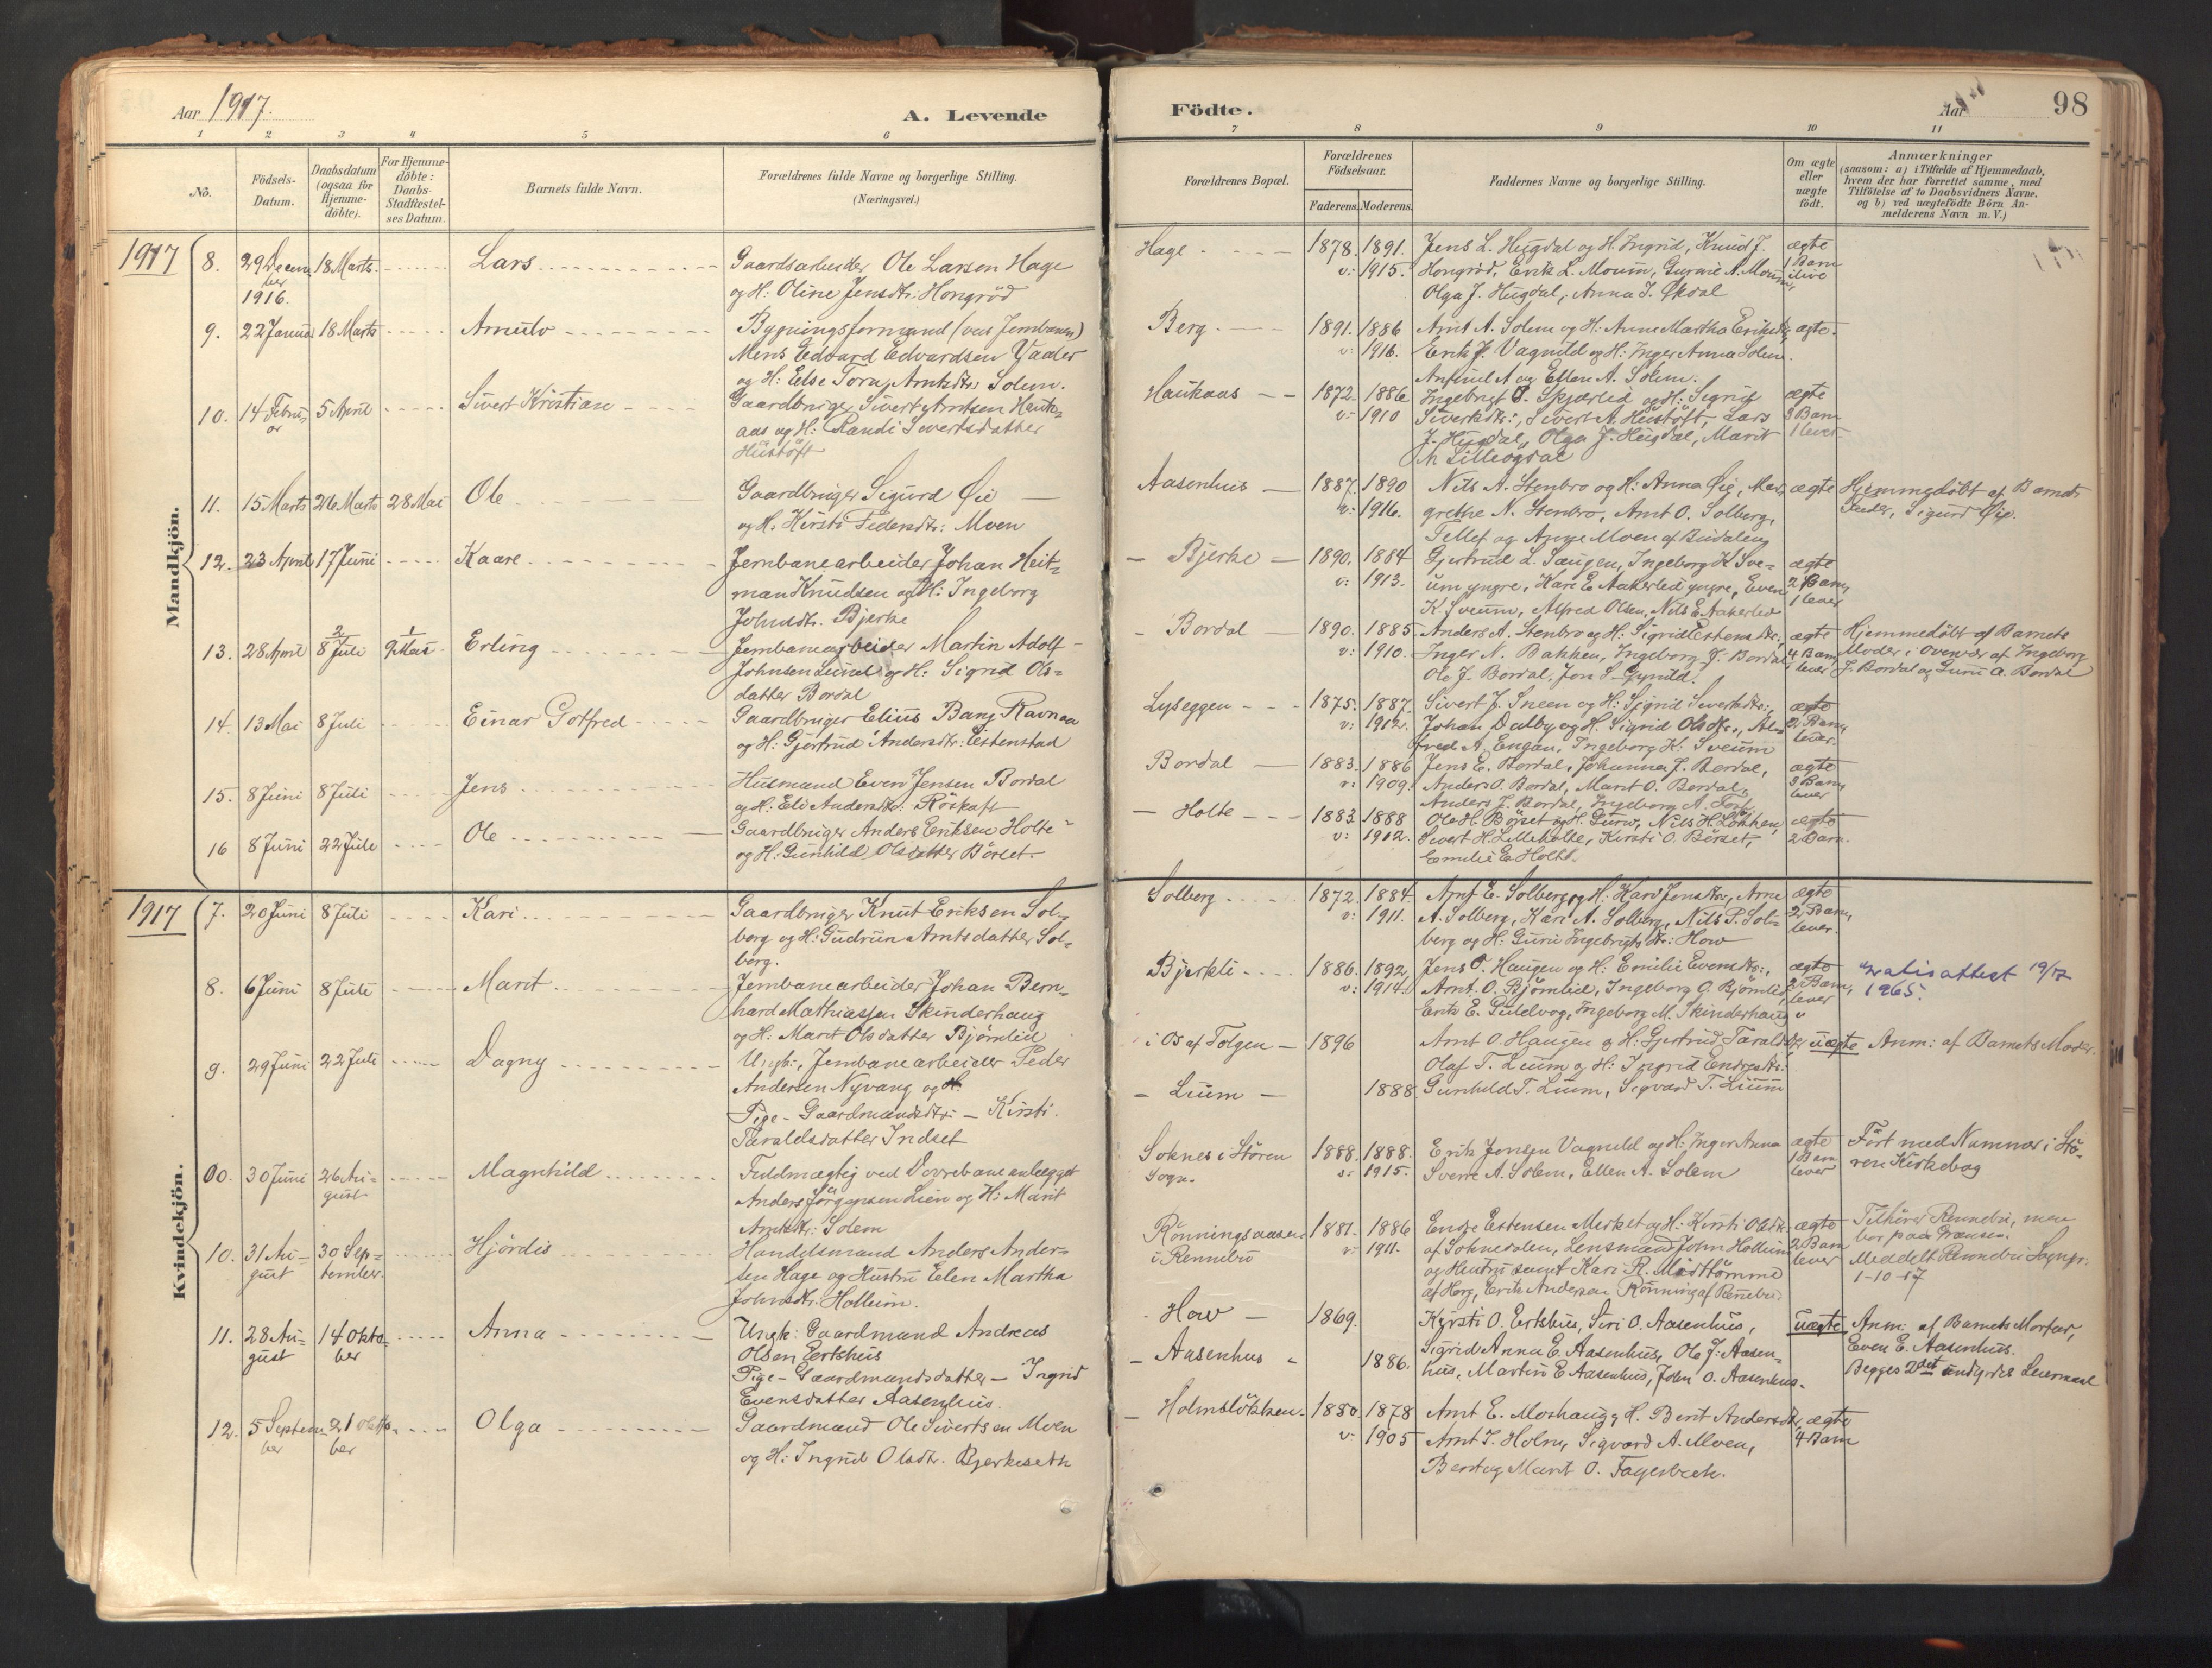 Aar 1917.
A. Levende
Födte.
Aar
98
1 2 3 4 5 6
7 8 9 10 11
No.
Födsels-Datum.
Daabsdatum (ogsaa for Hjemmedöbte).
For Hjemmedöbte: Daabs-Stadfæstelses Datum.
Barnets fulde Navn.
Forældrenes fulde Navne og borgerlige Stilling.
(Næringsvei.)
Forældrenes Bopæl.
Forældrenes Födselsaar.
Faderens. Moderens.
Faddernes Navne og borgerlige Stilling.
Om ægte eller uægte födt.
Anmærkninger
(saasom: a) i Tilfælde af Hjemmedaab,
hvem der har forrettet samme, med
Tilföielse af to Daabsvidners Navne,
og b) ved uægtefödte Börn Anmelderens Navn m. V.)
Mandkjön.
1917
8. 29 Decem 18 Marts. Lars Gaardsarbeider Ole Larsen Hage
ber
1916. og H: Oline Jensdtr. Hongröd
Hage 1878. 1891. Jens L. Hugdal og H. Ingrid, Knud J. ægte
v: 1915. Hongröd, Erik L. Moum, Gurine A. Moum, 1 Barn ilive
Olga J. Hugdal, Anna J. Økdal
9. 22 Januar 18 Marts Arnulv Bygningsformand (ved Jernbanen)
Mens Edvard Edvardsen Vaaler
og H: Else Tora Arntsdtr. Solem.
Berg 1891. 1886 Arnt A. Solem og H: Anne Martha Eriksdtr, ægte.
v: 1916. Erik J. Vagnild og H: Inger Anna Solem.
Anfind A og Ellen A. Solem.
10. 14 Februar 5 April Sivert Kristian Gaardbruger Sivert Arntsen Haukaas
og H: Randi Sivertsdatter
Hustöft
Haukaas 1872. 1886 Ingebrigt O. Skjærlid og H: Sigrid ægte
v: 1910 Sivertsdtr:, Sivert A. Hustöft, Lars 3 Barn
J. Hugdal, Olga J. Hugdal, Marit 1 lever
M Lilleögdal
11. 15 Marts 26 Marts 28 Mai Ole Gaardbruger Sigurd Øie
og H. Kirsti Pedersdtr: Moen
Aasenhus 1887. 1890 Nils A. Stenbro og H: Anna Øie, Mar- ægte Hjemmedöbt af Barnets
v: 1916. grethe N. Stenbro, Arnt O. Solberg, Fader, Sigurd Øie.
Tellef og Anne Moen af Budalen
12. 23 April 17 Juni Kaare Jernbanearbeider Johan Heit-
man Knudsen og H: Ingeborg
Johnsdtr. Bjerke
Bjerke 1890. 1884 Gjertrud L. Saugen, Ingeborg K. Sve- ægte
v: 1913. um yngre, Kari E. Aakerled yngre, Even 2 Barn,
K. Sveum, Alfred Olsen, Nils E. Aakerled 1 lever
13. 28 April 2/8 Juli 1/9 Mai Erling Jernbanearbeider Martin Adolf
Johnsen Lund og H: Sigrid Ols-
datter Bordal
Bordal 1890. 1885 Anders A. Stenbro og H: Sigrid Estensdtr:, ægte Hjemmedöbt af Barnets
v: 1910. Inger N. Bakken, Ingeborg J. Bordal, 4 Barn, Moder i Overvær af Ingeborg
Ole J. Bordal, Jon S. Gynild. lever J. Bordal og Guru A. Bordal
14. 13 Mai 8 Juli Einar Gotfred Gaardbruger Elius Bang Ravnaa
og H: Gjertrud Andersdtr: Estenstad
Lyseggen 1875. 1887. Sivert J. Sneen og H: Sigrid Sivertsdtr:, ægte
v: 1912. Johan Dalby og H. Sigrid Olsdtr., Al- 2 Barn,
fred A. Engan, Ingeborg K. Sveum lever.
15. 8 Juni 8 Juli Jens Husmand Even Jensen Bordal
og H: Eli Andersdtr: Röskaft
Bordal 1883. 1886 Jens E. Bordal, Johanna J. Bordal, ægte
v: 1909. Anders O. Bordal, Marit O. Bordal, 3 Barn
Anders J. Bordal, Ingeborg A. lever
16 8 Juni 22 Juli Ole Gaardbruger Anders Eriksen Holte
og H. Gunhild Olsdatter Börset.
Holte 1883 1888 Ole H. Börset og H. Guru, Nils H. Lökken, ægte
v: 1912. Sivert H. Lilleholte, Kirsti O. Börset, 2 Barn.
Emilie E. Holte.
Kvindekjön.
1917
7. 20 Juni 8 Juli Kari Gaardbruger Knut Eriksen Sol-
berg og H: Gudrun Arntsdatter Sol-
berg.
Solberg 1872. 1884. Arnt E. Solberg og H: Kari Jensdtr:, Arne ægte
v: 1911. A. Solberg, Kari A. Solberg, Nils P. Sol- 2 Barn,
berg og H: Guru Ingebrigtsdtr: How lever.
8. 6 Juni 8 Juli Marit Jernbanearbeider Johan Bern-
hard Mathiassen Skinderhaug
og H: Marit Olsdatter Bjørnlid
Bjerkli 1886. 1892. Jens O. Haugen og H: Emilie Evensdtr:, ægte Gratisattest 19/12
v: 1914. Arnt O. Bjørnlid, Ingeborg O. Bjørnlid, 2 Barn, 1965.
Erik E. Guldvog, Ingeborg M. Skinderhaug lever
9. 29 Juni 22 Juli Dagny Ungk:, Jernbanearbeider Peder
Andersen Nyvang og
Pige - Gaardmandsdtr: - Kirsti
Taraldsdatter Indset
i Os af Tolgen 1896 Arnt O. Haugen og H: Gjertrud Taraldsdtr, uægte Anm: af Barnets Moder.
Olaf T. Lium og H: Ingrid Endresdtr:
Lium 1888. Gunhild T. Lium, Sigvard T. Lium
00. 30 Juni 26 August Magnhild Fuldmægtig ved Dovrebaneanlægget
Anders Jörgensen Lien og H: Marit
Arntsdtr: Solem
Soknes i Stören 1888. 1888. Erik Jensen Vagnild og H: Inger Anna ægte Fört med Nummer i Stö-
Sogn. v: 1915. Sverre A. Solem, Ellen A. Solem 1 Barn lever ren Kirkebog
10. 31 August 30 September Hjördis Handelsmand Anders Ander-
sen Hage og Hustru Elen Martha
Johnsdtr. Hollum.
Rönningsaasen 1881. 1886 Endre Estensen Merket og H: Kirsti Olsdtr. ægte Tilhörer Rennebu, men
i Rennebu v: 1911. af Soknedalen, Lensmand John Hollum 2 Barn bor paa Grænsen.
og Hustru samt Kari R. Midttömme lever Meddelt Rennebu Sognepr.
af Horg, Erik Andersen Rönning af Rennebu. 1-10-17
11. 28 August 14 Oktober Anna Ungk: Gaardmand Andreas
Olsen Eertshus
Pige - Gaardmandsdatter - Ingrid
Evensdatter Aasenhus.
How 1869. Kirsti O. Ertshus, Siri O. Aasenhus, uægte Anm: af Barnets Morfar,
Aasenhus 1886. Sigrid Anna E. Aasenhus, Ole J. Aasen- Even E. Aasenhus.
hus, Martin E. Aasenhus, John O. Aasenhus. Begges 2det Leiermaal
12. 5 September 21 Oktober Olga Gaardmand Ole Sivertsen Moen
og H: Ingrid Olsdtr. Bjerkeseth
Holmslökken 1880 1878 Arnt E. Moshaug, H. Berit Andersdtr, ægte
v: 1905 Arnt J. Holm, Sigvard A. Moen, 4 Barn
Berit og Marit O. Fagerbek.